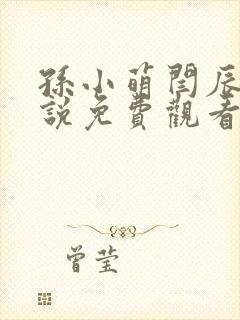 孫小萌閆辰
說免費觀看
曾莹